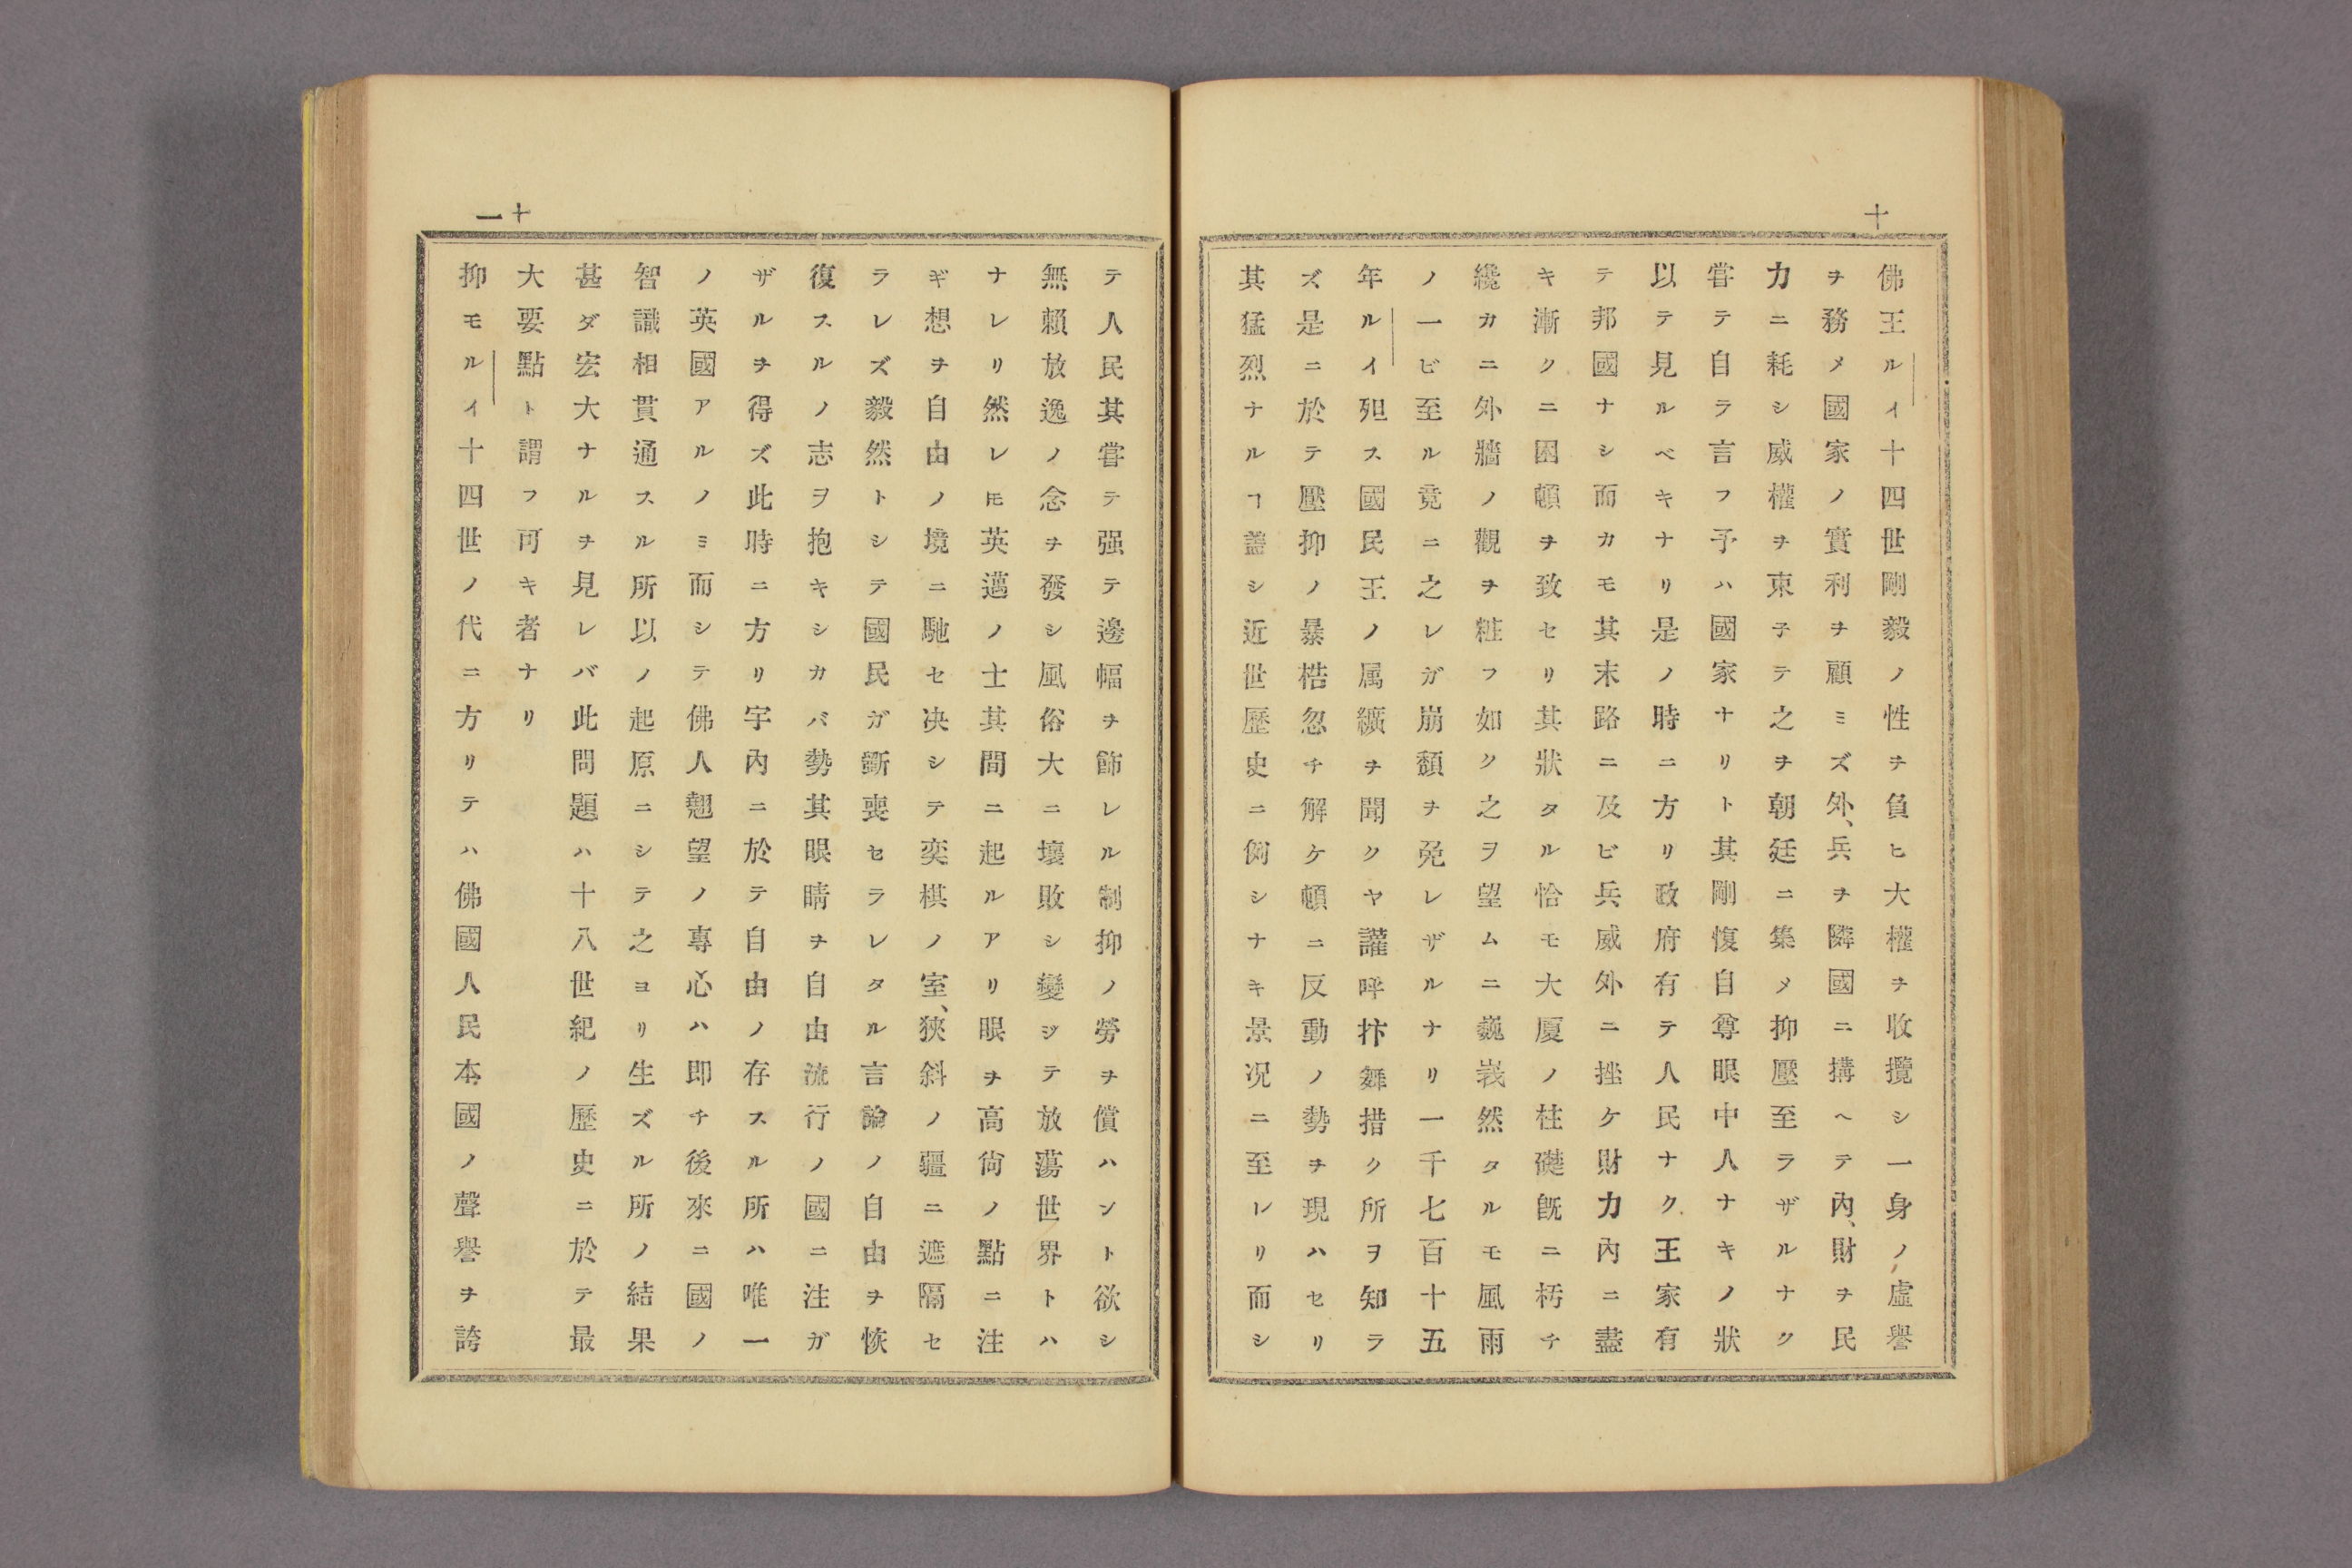 十
佛王ルイ十四世剛毅ノ性ヲ負ヒ大權ヲ收攬シ一身ノ虛譽
ヲ務メ國家ノ實利ヲ顧ミズ外、兵ヲ隣國ニ搆ヘテ內、財ヲ民
力ニ耗シ威權ヲ束子テ之ヲ朝廷ニ集メ抑壓至ラザルナク
甞テ自ラ言フ予ハ國家ナリト其剛愎自尊眼中人ナキノ狀
以テ見ルベキナリ是ノ時ニ方リ政府有テ人民ナク王家有
テ邦國ナシ而カモ其末路ニ及ビ兵威外ニ挫ケ財力內ニ盡
キ漸クニ困頓ヲ致セリ其狀タル恰モ大厦ノ柱礎既ニ朽チ
纔カニ外牆ノ觀ヲ粧フ如ク之ヲ望ムニ巍峩然タルモ風雨
ノ一ビ至ル竟ニ之レガ崩頽ヲ免レザルナリ一千七百十五
年ルイ殂ス國民王ノ属纊ヲ聞クヤ讙呼抃舞措ク所ヲ知ラ
ズ是ニ於テ壓抑ノ暴梏忽チ解ケ頓ニ反動ノ勢ヲ現ハセリ
其猛烈ナルヿ蓋シ近世歷史ニ例シナキ景況ニ至レリ而シ
十一
テ人民其甞テ强テ邊幅ヲ飾レル制抑ノ勞ヲ償ハント欲シ
無賴放逸ノ念ヲ發シ風俗大ニ壞敗シ變ジテ放蕩世界トハ
ナレリ然レ𪜈英邁ノ士其間ニ起ルアリ眼ヲ高尙ノ點ニ注
ギ想ヲ自由ノ境ニ馳セ决シテ奕棋ノ室、狹斜ノ疆ニ遮隔セ
ラレズ毅然トシテ國民ガ斷喪セラレタル言論ノ自由ヲ恢
復スルノ志ヲ抱キシカバ勢其眼睛ヲ自由流行ノ國ニ注ガ
ザルヲ得ズ此時ニ方リ宇內ニ於テ自由ノ存スル所ハ唯一
ノ英國アルノミ而シテ佛人翹望ノ專心ハ即チ後來ニ國ノ
智識相貫通スル所以ノ起原ニシテ之ヨリ生ズル所ノ結果
甚ダ宏大ナルヲ見レバ此問題ハ十八世紀ノ歷史ニ於テ最
大要點ト謂フ可キ者ナリ
抑モルイ十四世ノ代ニ方リテハ佛國人民本國ノ聲譽ヲ誇